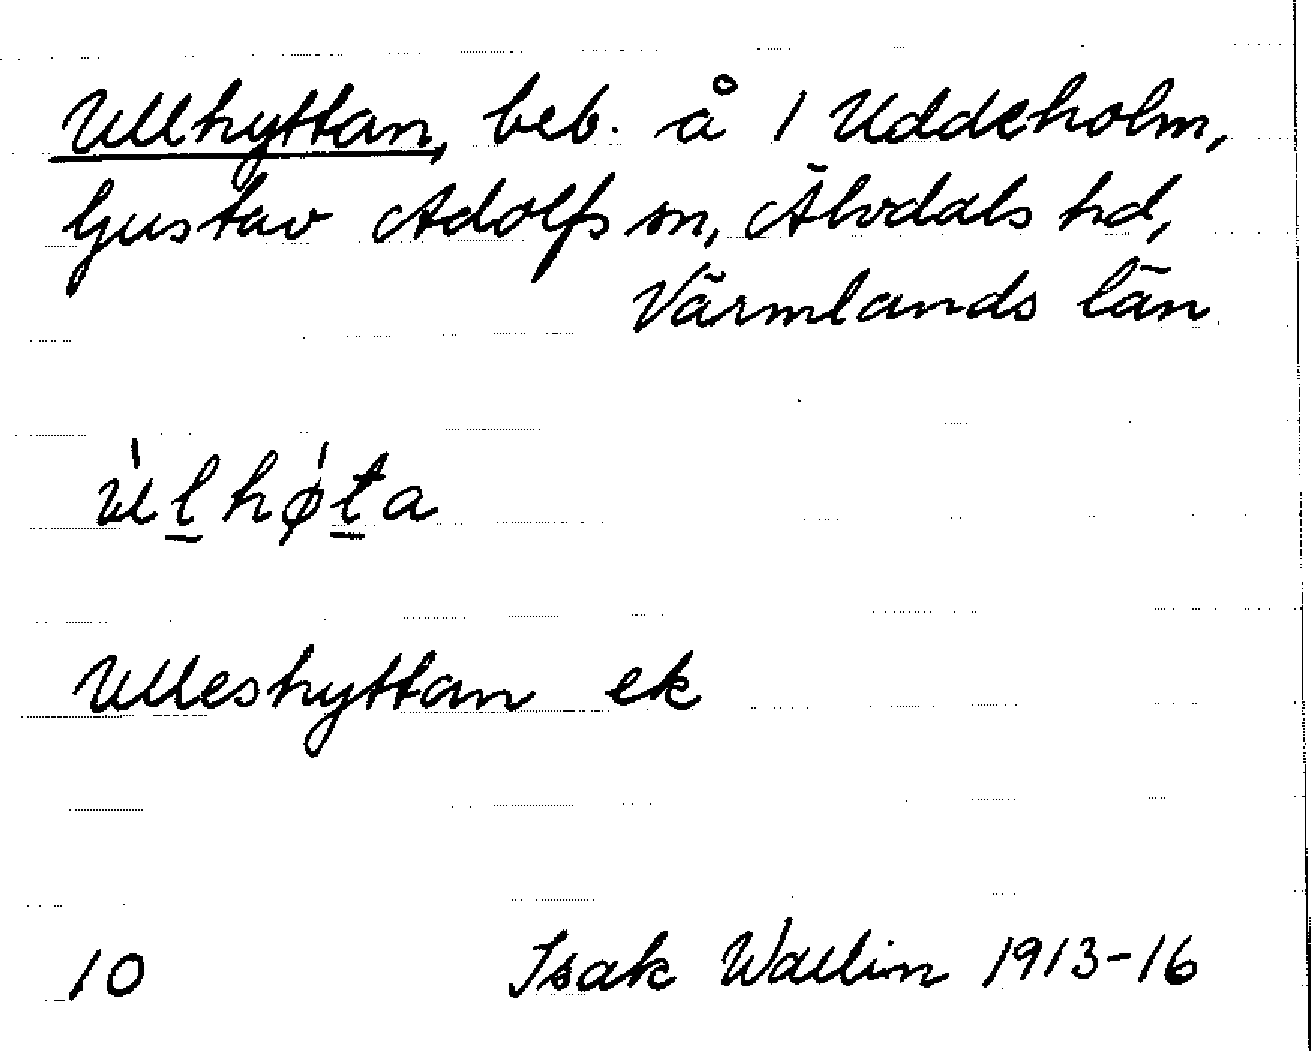 Ullhyttan, beb. å 1 Uddeholm,
Gustav Adolfs sn, Älvdals hd,
Värmlands län
ùl̠hø̀t̠a
Ulleshyttan ek
10 Isak Wallin 1913-16